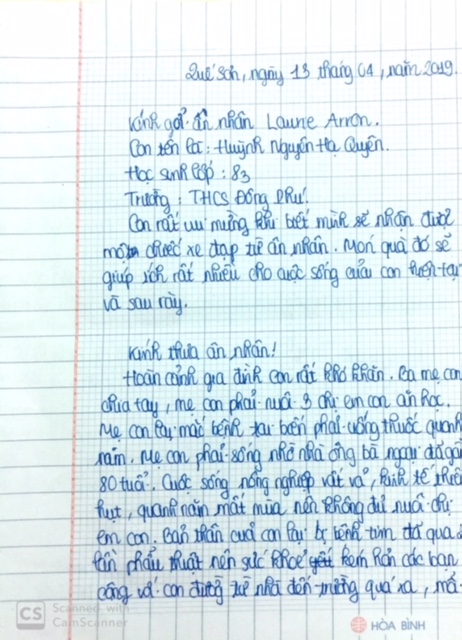 Quế Sơn, ngày 13 tháng 04, năm 2019.
Kính gởi ân nhân Laurie Arron.
Con tên là: Huỳnh Nguyễn Hạ Quyên.
Học sinh lớp: 83
Trường: THCS Đông Phú.
Con rất vui mừng khi biết mình sẽ nhận được
một chiếc xe đạp từ ân nhân. Món quà đó sẽ
giúp ích rất nhiều cho cuộc sống của con hiện tại
và sau này.
Kính thưa ân nhân!
Hoàn cảnh gia đình con rất khó khăn. Ba mẹ con
chia tay, mẹ con phải nuôi 3 chị em con ăn học.
Mẹ con lại mắc bệnh tai biến phải uống thuốc quanh
năm. Mẹ con phải sống nhờ nhà ông bà ngoại đã gần
80 tuổi. Cuộc sống nông nghiệp vất vả, kinh tế thiếu
hụt, quanh năm mất mùa nên không đủ nuôi chị
em con. Bản thân của con lại bị bệnh tim đã qua 2
lần phẩu thuật nên sức khoẻ kém hơn các bạn
cộng với con đường từ nhà đến trường quá xa, mà
CS Scanned with
CamScanner
HÒA BÌNH